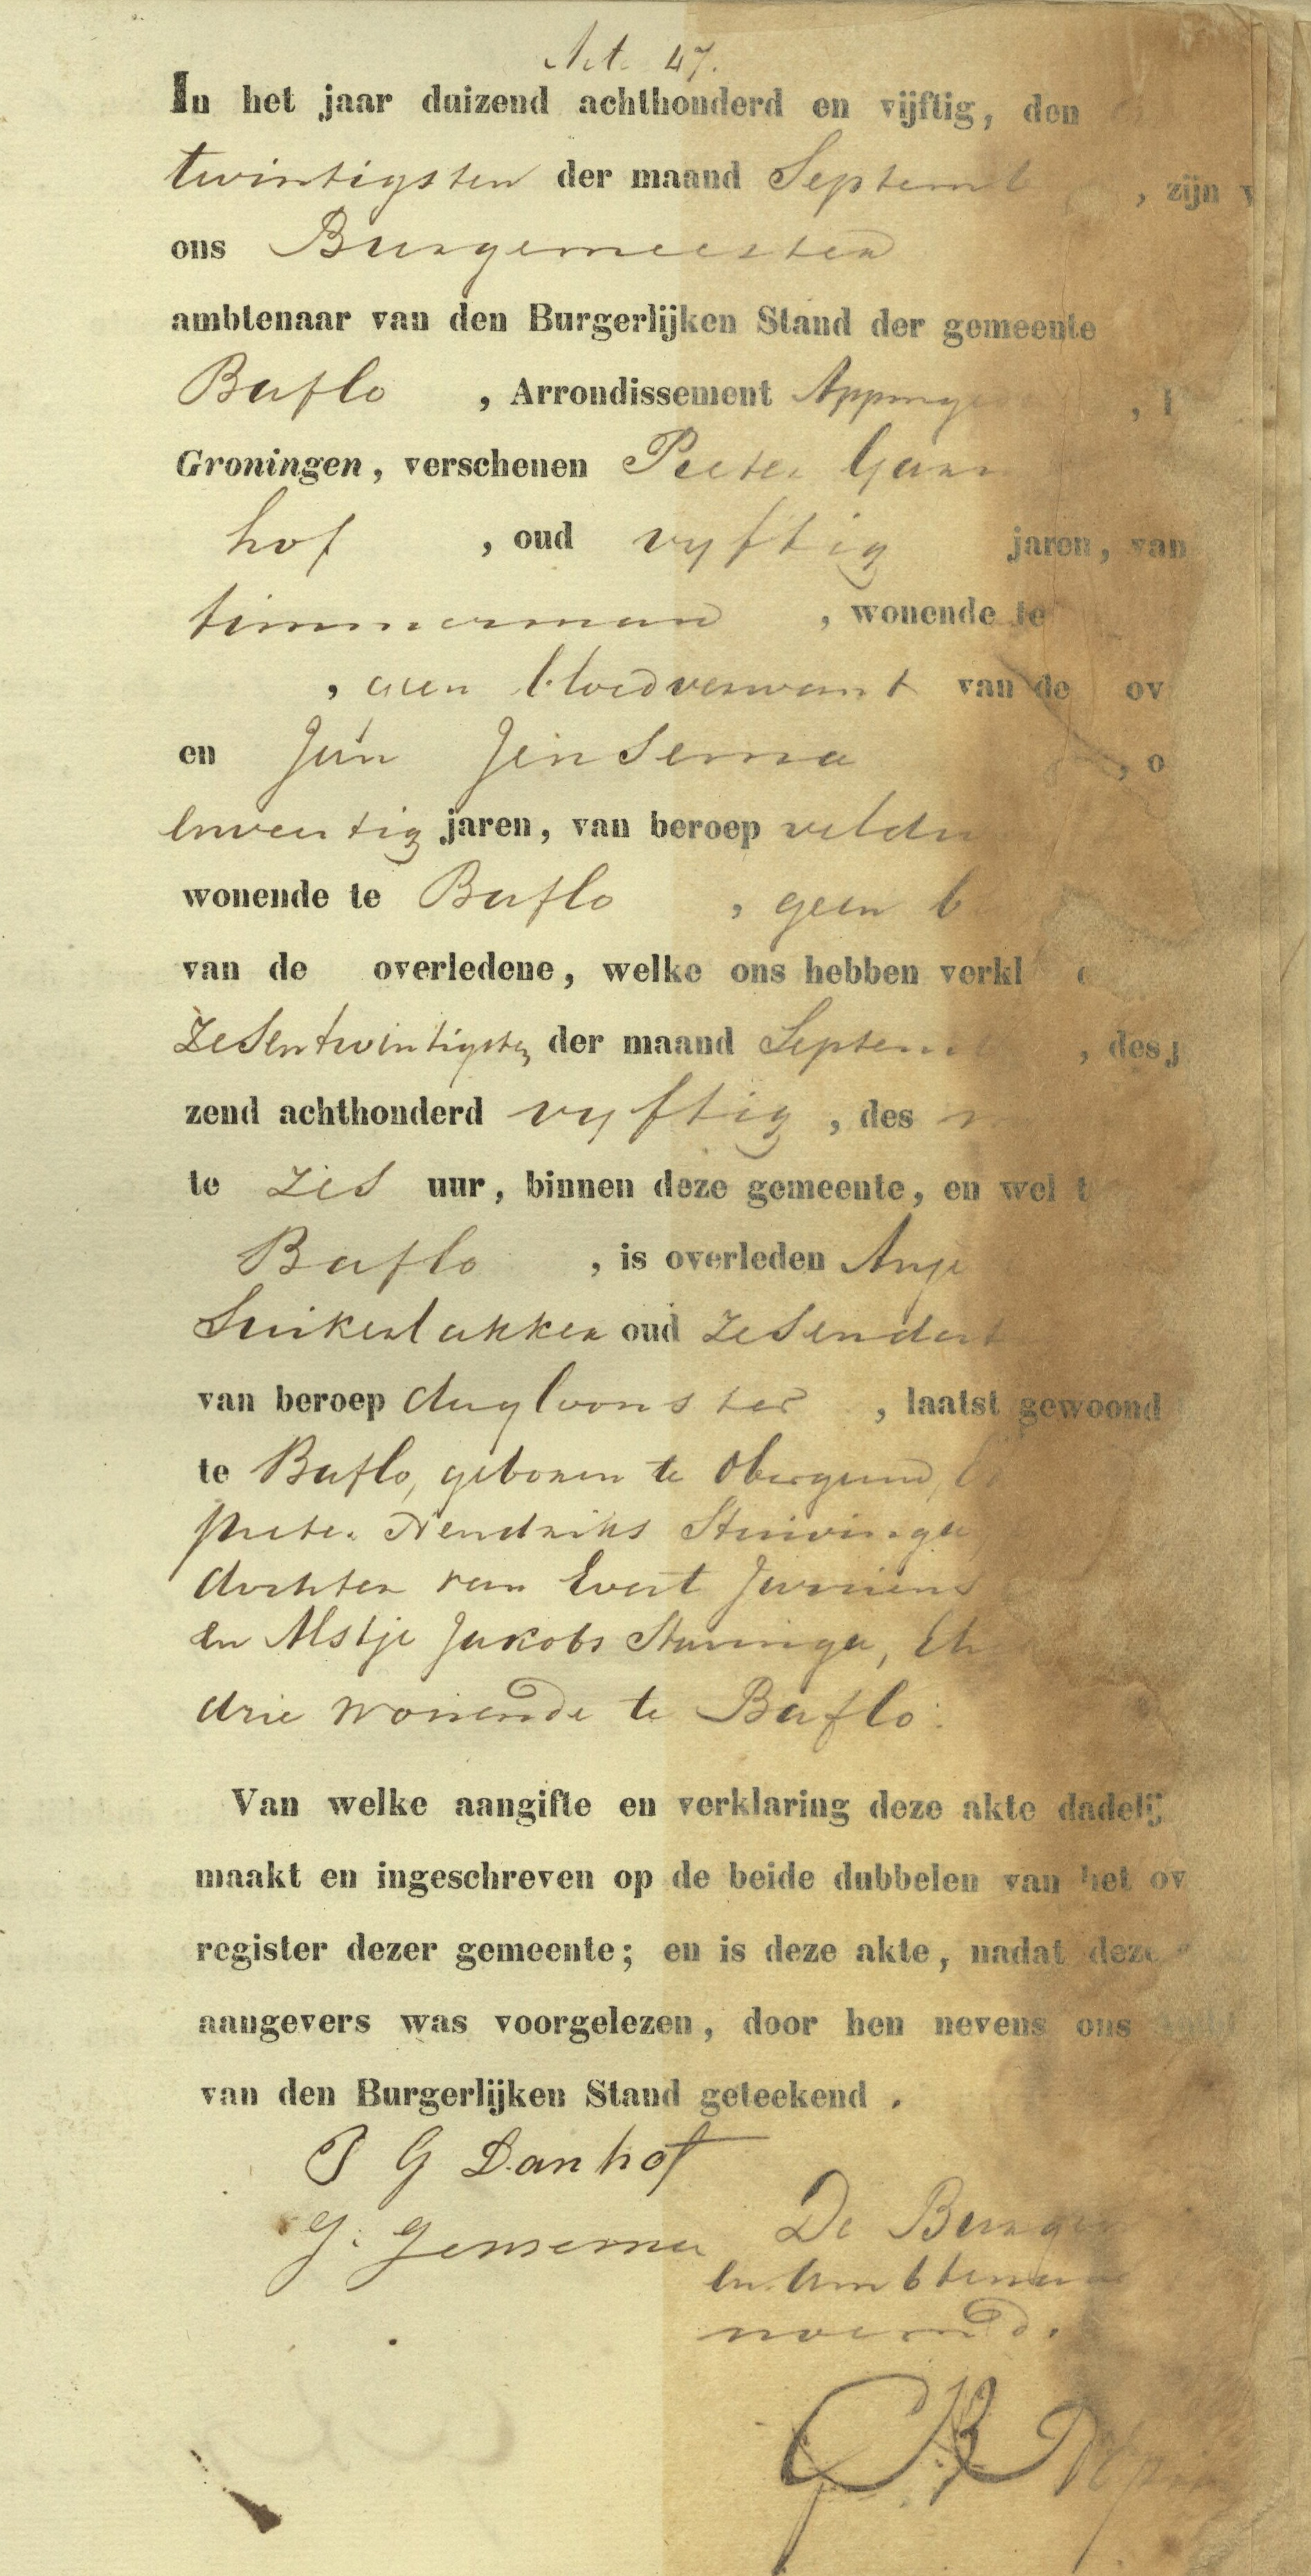 Act. 47.
In het jaar duizend achthonderd en vijftig, den
twintigsten der maand Septemb , zijn v
ons Burgemeester
ambtenaar van den Burgerlijken Stand der gemeente
Baflo , Arrondissement Appinge ,
Groningen, verschenen Pieter
hof , oud vyftig jaren, van
timmerman , wonende te
, geen bloedverwant van de ov
en Jan Jensema , o
entwintig jaren, van beroep veldw
wonende te Baflo , geen b
van de overledene, welke ons hebben verkl
Zesentwintigsten der maand Septem , des j
zend achthonderd vyftig , des
te zes uur, binnen deze gemeente, en wel t
Baflo , is overleden Anje
Suikerbakker oud zesendert
van beroep dagloonster , laatst gewoond
te Baflo, geboren te Obergum,
Pieter Hendriks
dochter van Evert Jurriens
en Alstje Jakobs
drie wonende te Baflo.
Van welke aangifte en verklaring deze akte dadelij
maakt en ingeschreven op de beide dubbelen van het ov
register dezer gemeente; en is deze akte, nadat deze
aangevers was voorgelezen, door hen nevens ons
van den Burgerlijken Stand geteekend .
P G Danhof
J. Jensema De Burgem
en Ambtenaar
noemd.